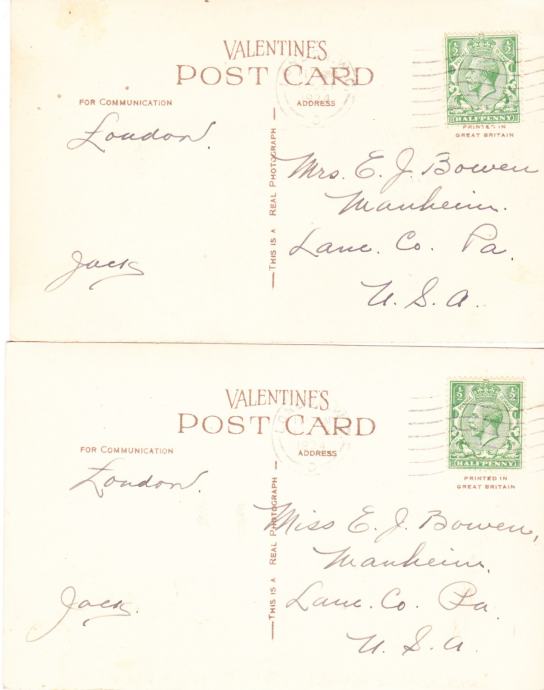 VALENTINES
POST CARD
FOR COMMUNICATION
ADDRESS
½ ½
HALFPENNY
PRINTED IN
GREAT BRITAIN
London.
THIS IS A REAL PHOTOGRAPH
Mrs. E. J. Bowen
Manheim.
Lanc. Co. Pa.
U. S. A.
Jack
VALENTINES
POST CARD
FOR COMMUNICATION
ADDRESS
½ ½
HALFPENNY
PRINTED IN
GREAT BRITAIN
London.
THIS IS A REAL PHOTOGRAPH
Miss E. J. Bowen,
Manheim.
Lanc. Co. Pa.
U. S. A.
Jack.
1924